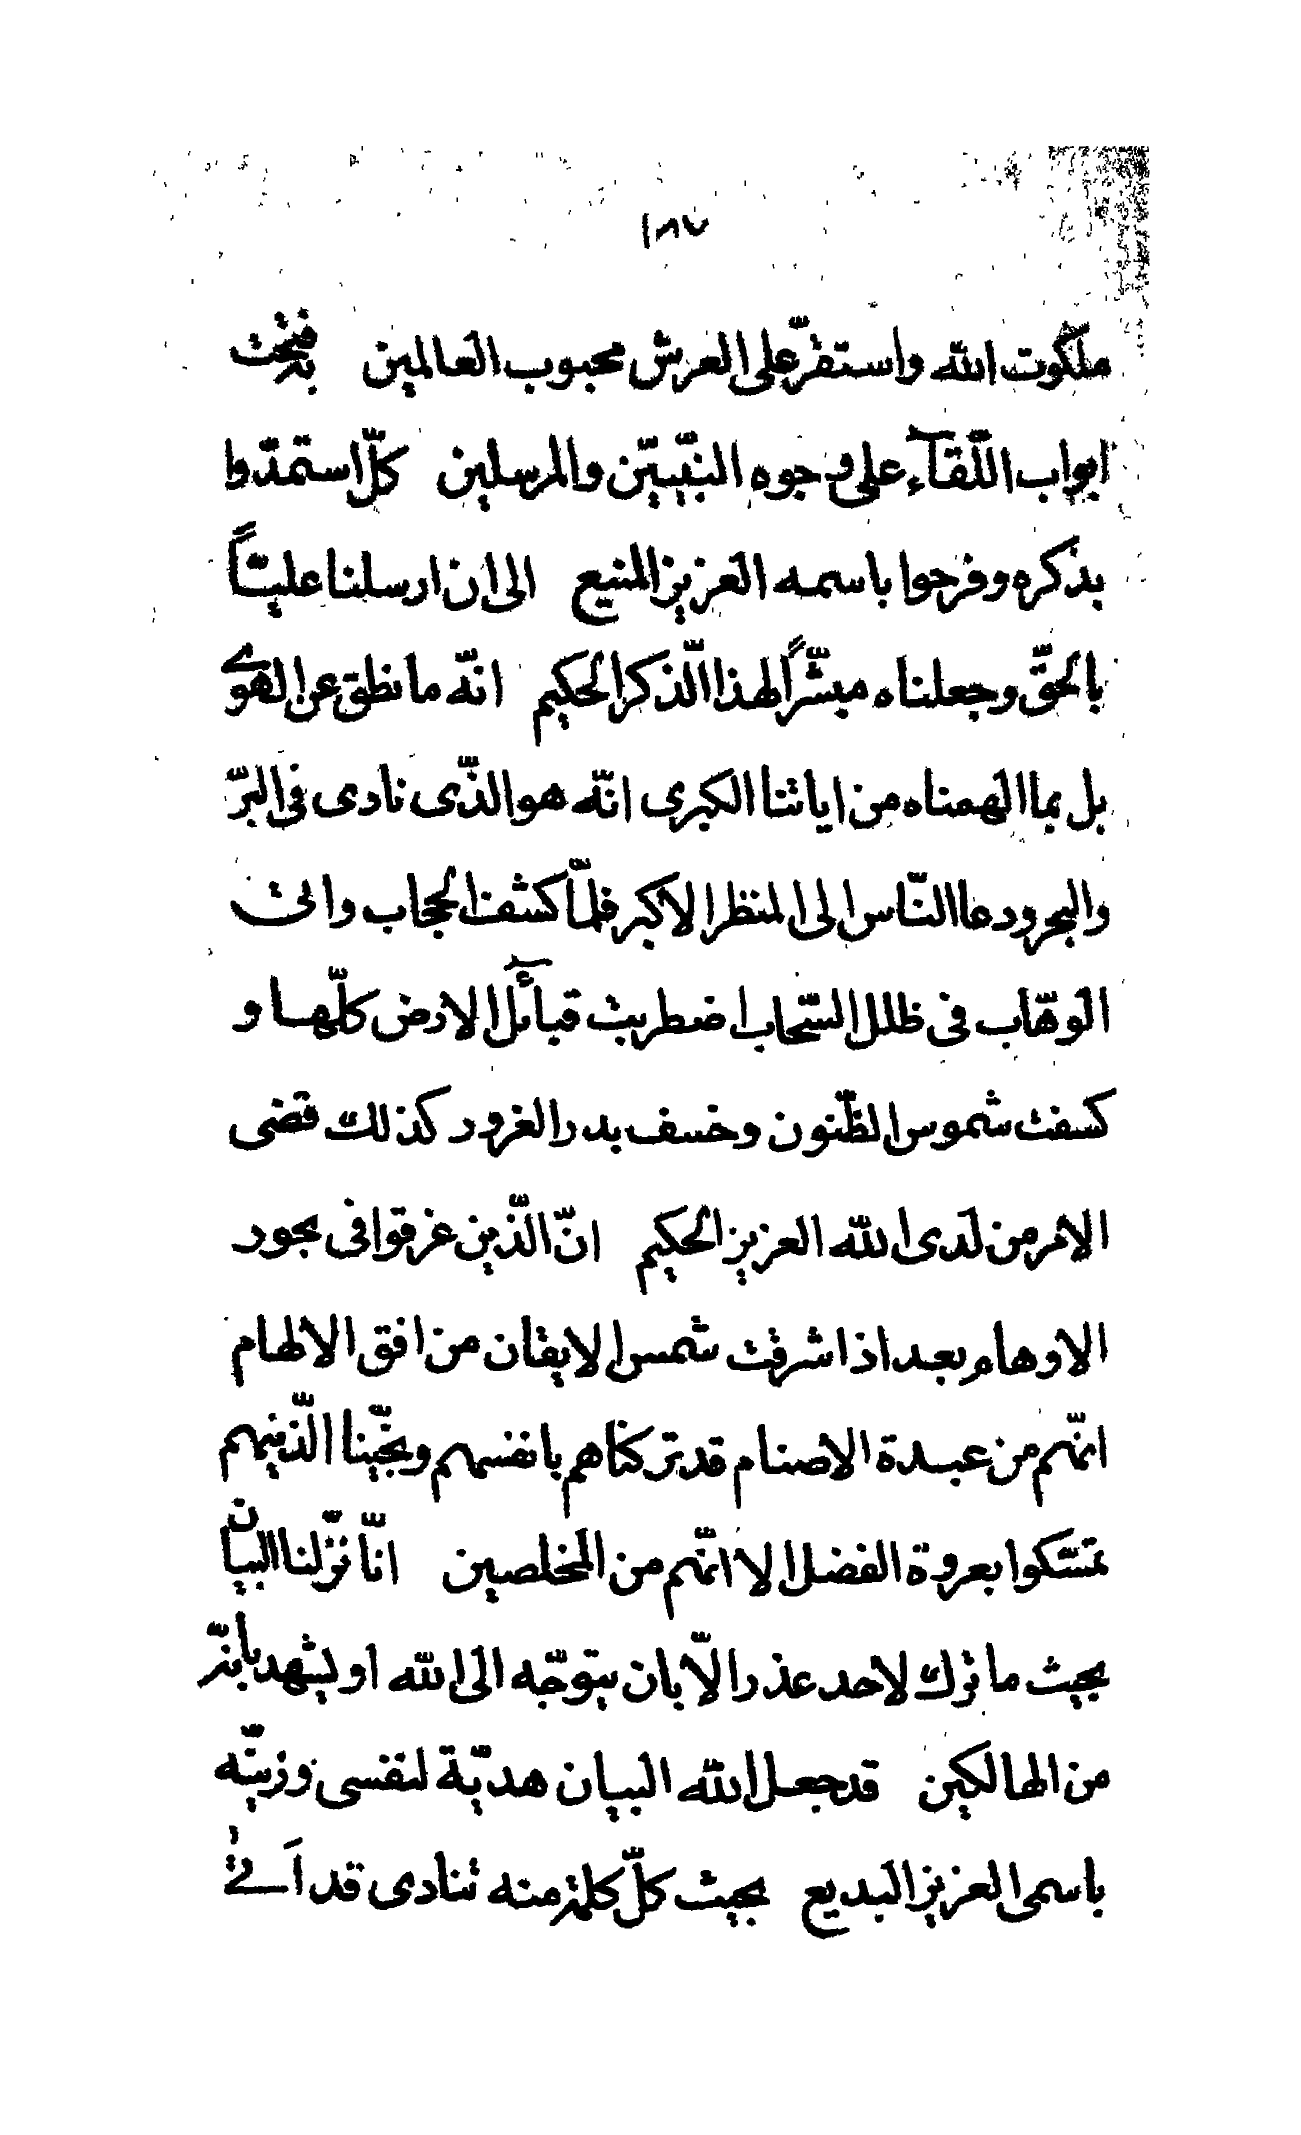 ١٨٧
ملكوت الله واستقرّ على العرش محبوب العالمين به فتحت
ابواب اللّقآء على وجوه النبّيّين والمرسلين كلّ استمدّوا
بذكره وفرحوا باسمه العزيز المنيع الى ان ارسلنا عليّاً
بالحقّ وجعلناه مبشّراً لهذا الّذكر الحكيم انّه ما نطق عن الهوى
بل بما الهمناه من اياتنا الكبرى انّه هو الذّى نادى فى البرّ
والبحر ودعا النّاس الى المنظر الاكبر فلمّا كشفنا الحجاب واتى
الوهّاب فى ظلل السّحاب اضطربت قبآئل الارض كلّها و
كسفت شموس الظّنون وخسف بدر الغرور كذلك قضى
الامر من لدى الله العزيز الحكيم انّ الّذين غرقوا فى بحور
الاوهام بعد اذ اشرقت شمس الايقان من افق الالهام
انّهم من عبدة الاصنام قد تركناهم بانفسهم ونجّينا الّذينهم
تمسّكوا بعروة الفضل الا انّهم من المخلصين انّا نزّلنا البيان
بحيث ما ترك لاحد عذر الّا بان يتوجّه الى الله او يشهد بانّه
من الهالكين قد جعل الله البيان هديّة لنفسى وزيّنه
باسمى العزيز البديع بحيث كلّ كلمة منه تنادى قد اَتى